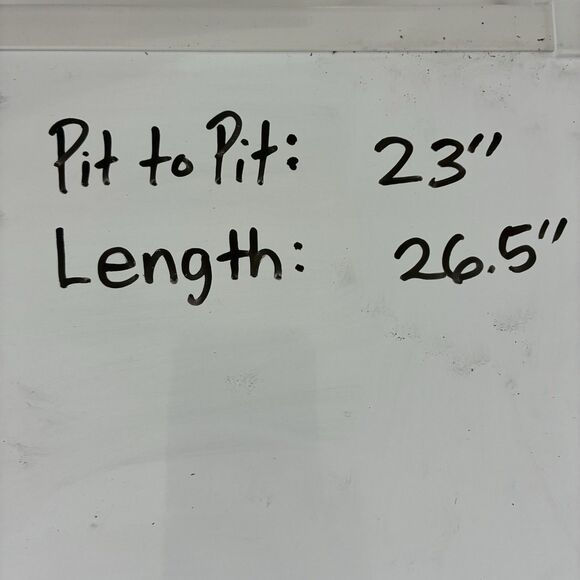 Pit to Pit: 23"
Length: 26.5"